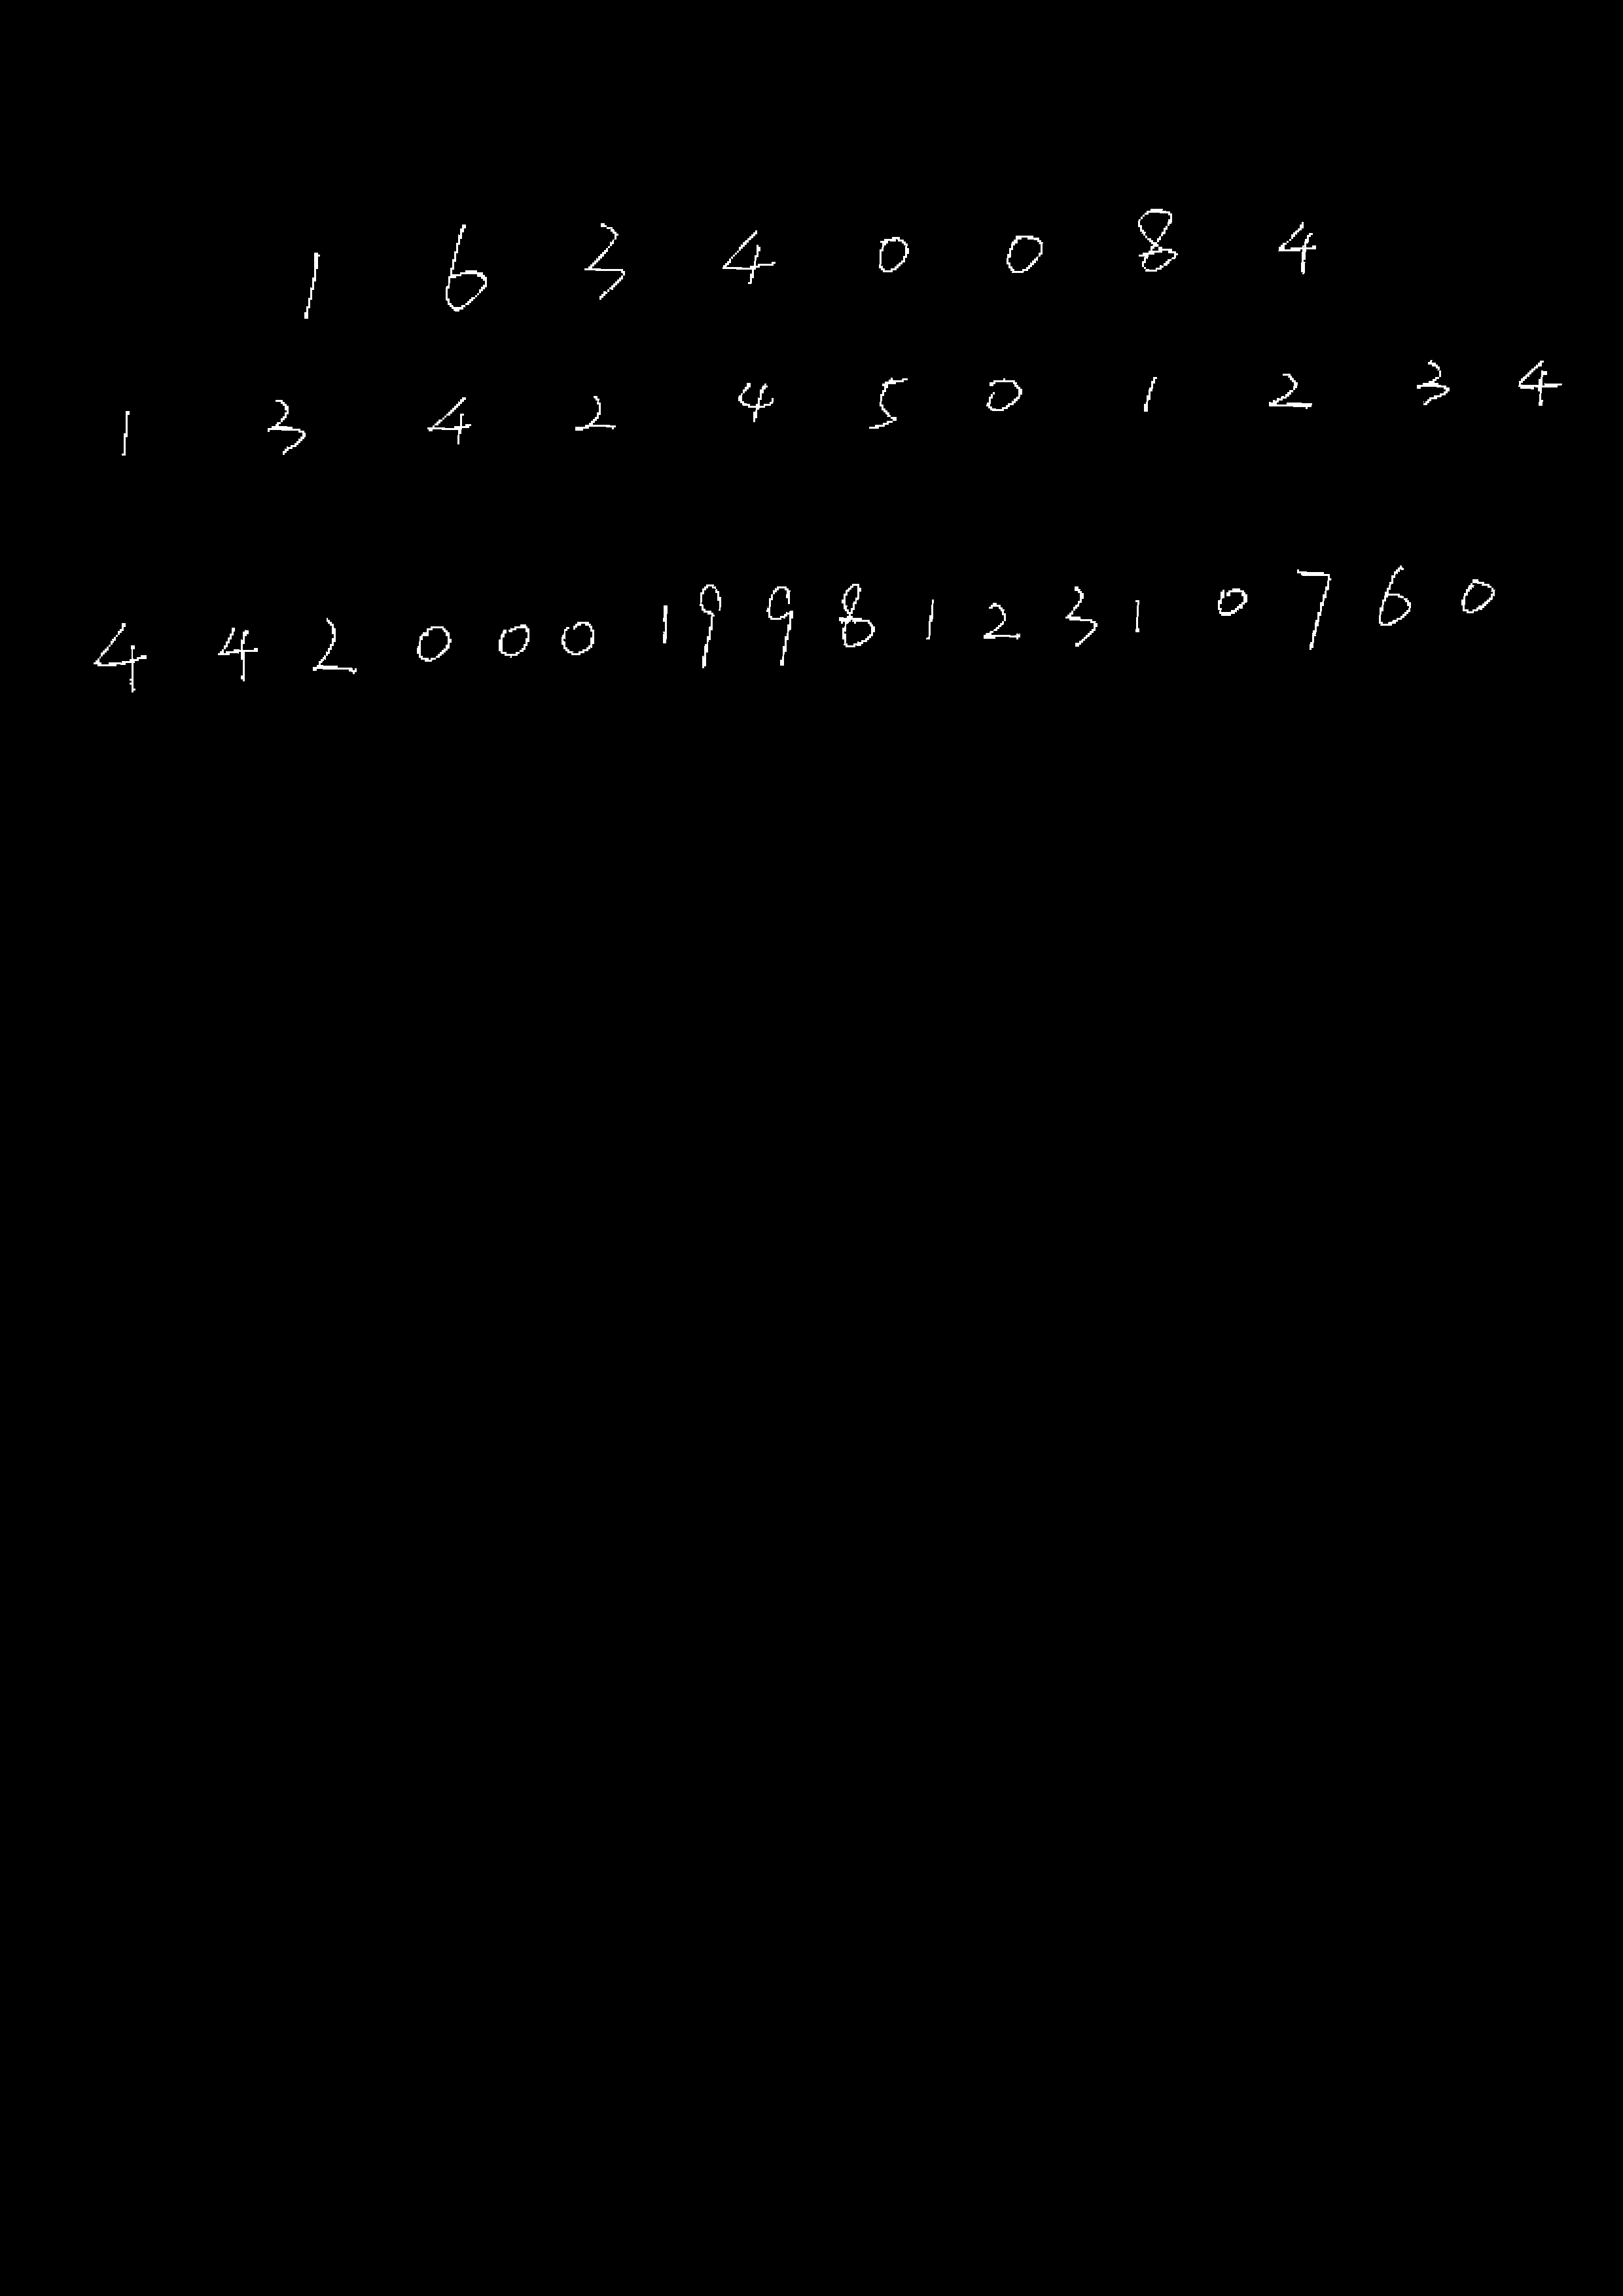 16340084
13424501234
442000199812310760